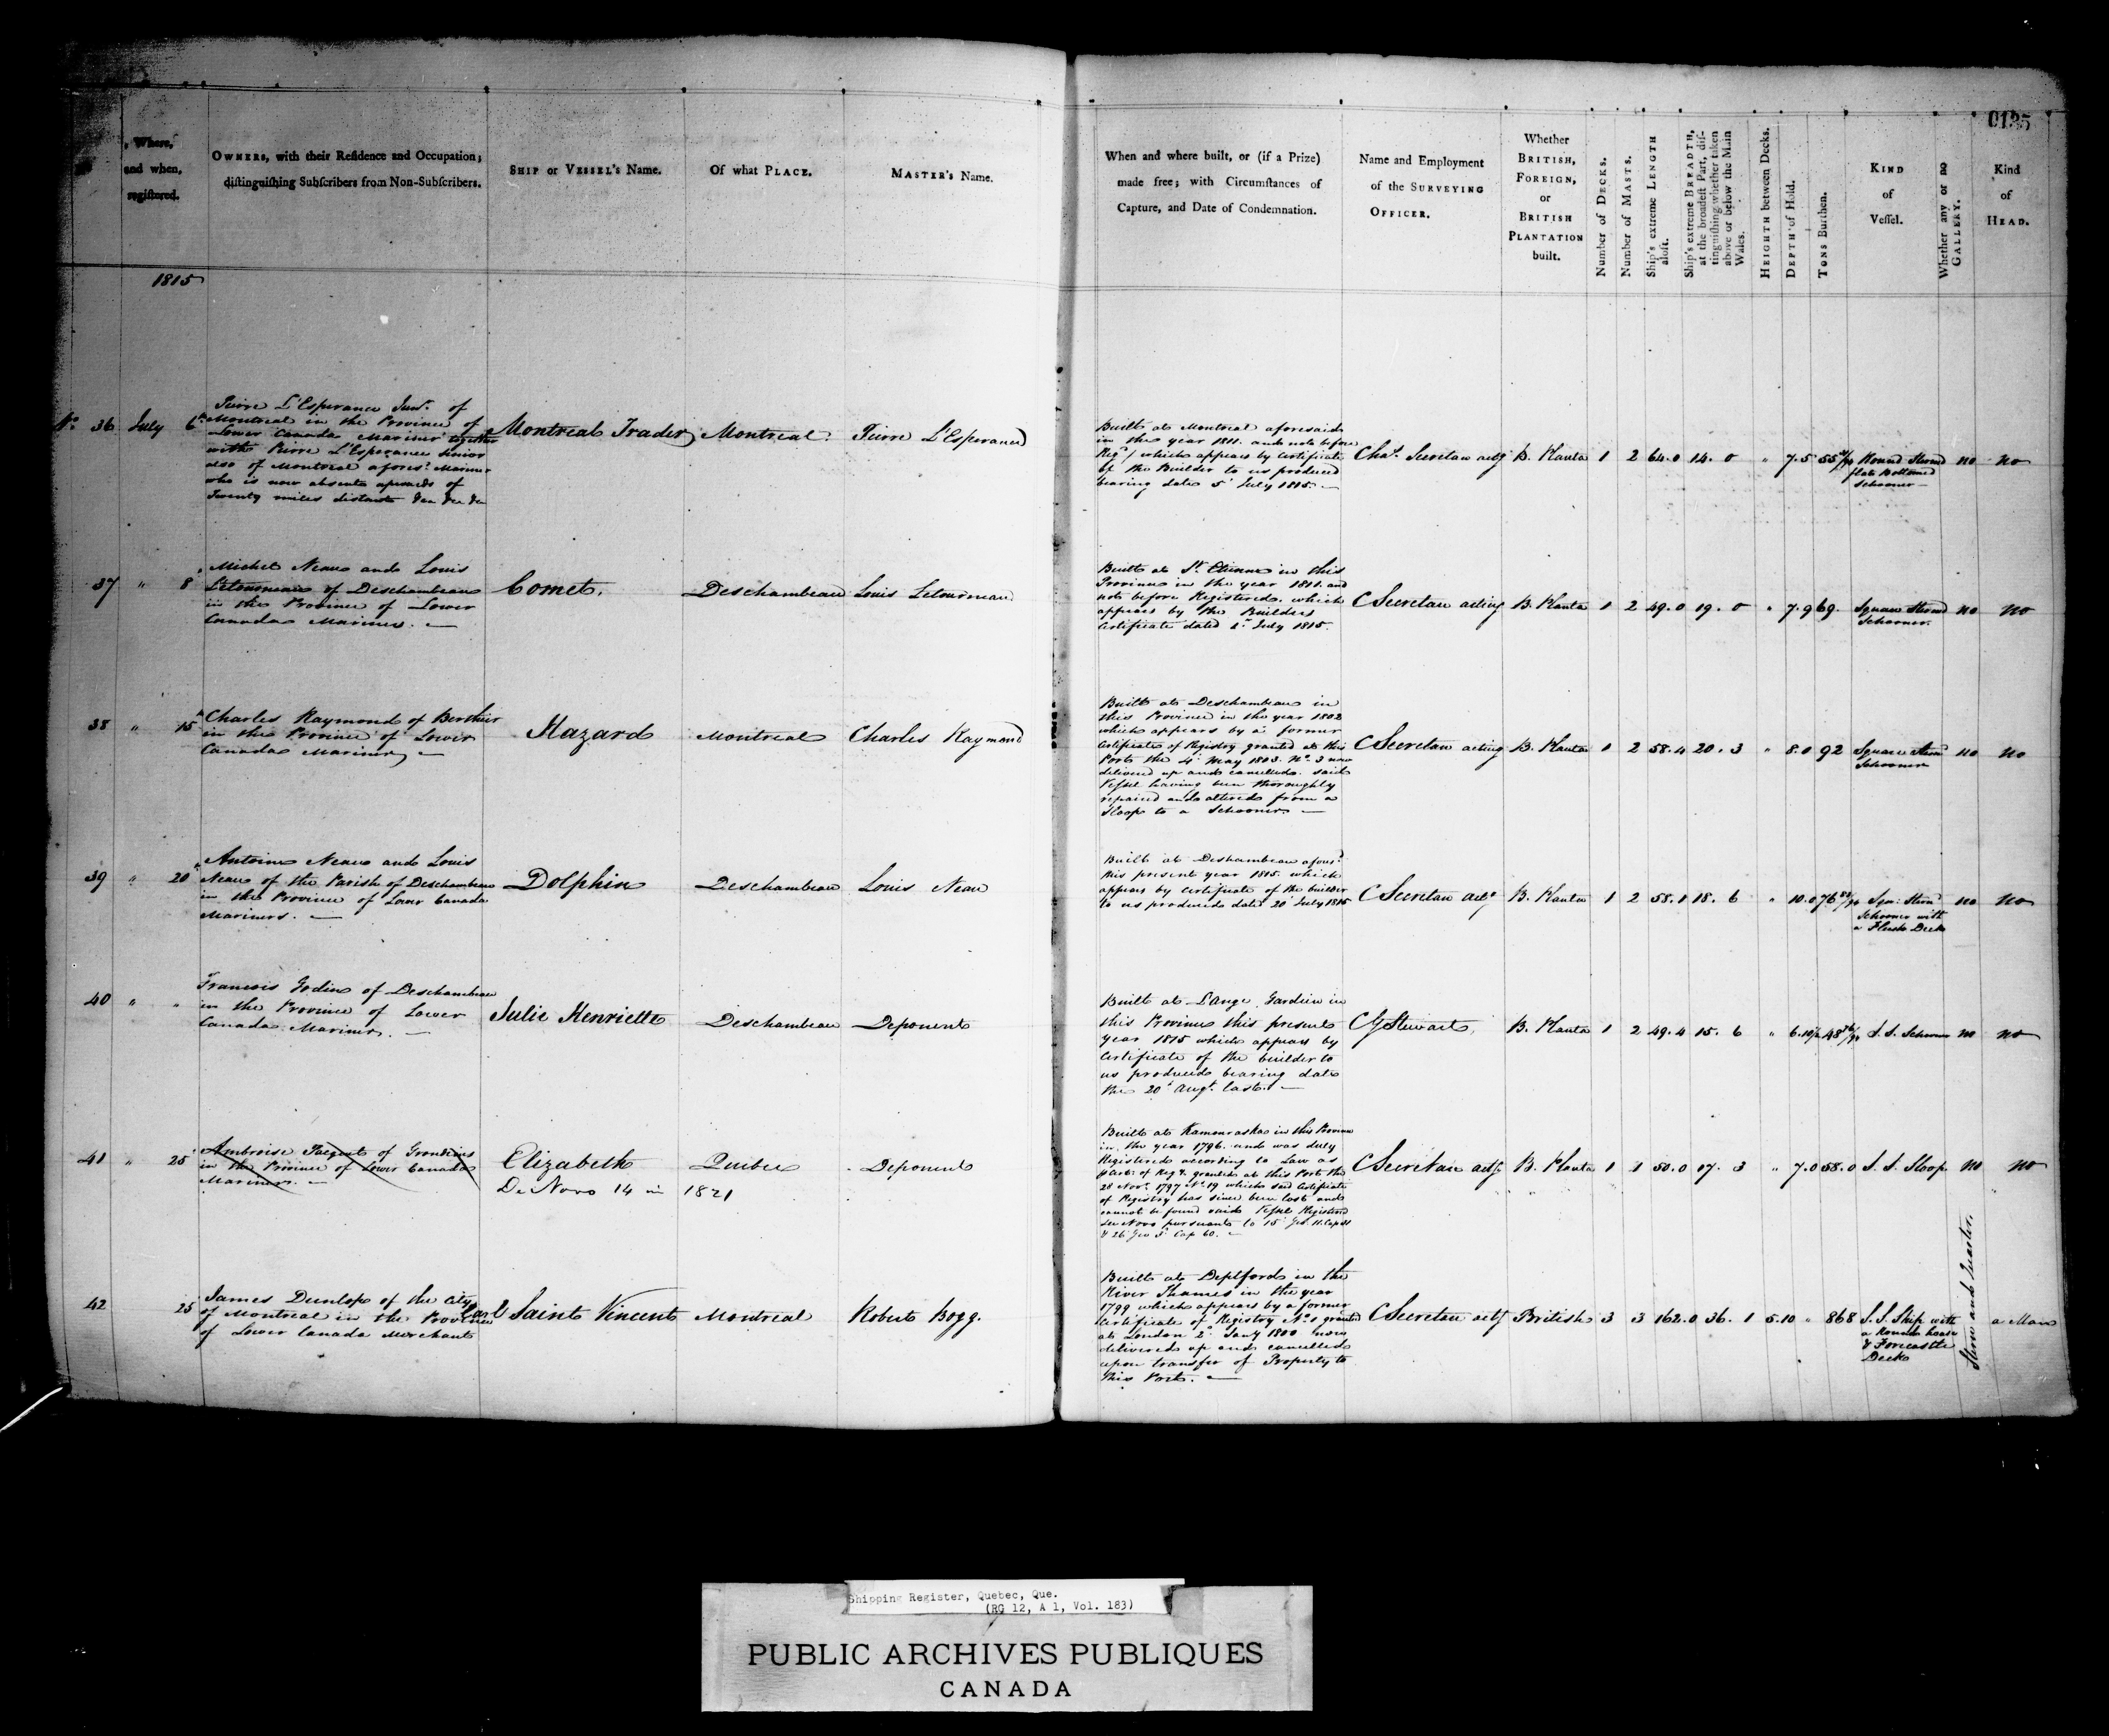 0135
, Where, and when, registered.
OWNERS, with their Residence and Occupation; distinguishing Subscribers from Non-Subscribers.
SHIP or VESSEL's Name.
Of what PLACE.
MASTER's Name.
When and where built, or (if a Prize) made free; with Circumstances of Capture, and Date of Condemnation.
Name and Employment of the SURVEYING OFFICER.
Whether BRITISH, FOREIGN, or BRITISH PLANTATION built.
Number of DECKS.
Number of MASTS.
Ship's extreme LENGTH aloft.
Ship's extreme BREADTH, at the broadest Part, distinguishing whether taken above or below the Main Wales.
HEIGHTH between Decks.
DEPTH of Hold.
TONS Burthen.
KIND of Vessel.
Whether any or no GALLERY.
Kind of HEAD.
1815
No. 36 July 6th
Pierre L'Esperance Junr. of
Montreal in the Province of
Lower Canada Mariner together
with Pierre L'Esperance Senior
also of Montreal afores.d Mariner
who is now absent upwards of
Twenty miles distant
Montreal Trader
Montreal
Pierre L'Esperance
Built at Montreal aforesaid
in the year 1811. and not before
Regd. which appears by Certificate
of the Builder to us produced
bearing date 5th July 1815.
Chas. Secretan actg
B. Planta 1 2 64.0 14.0 " 7.5 55
Round Sternd
flat Bottomed
Schooner
no no
37 " 8
Michel Neau and Louis
Letourneau of Deschambeau
in the Province of Lower
Canada Mariners.
Comet.
Deschambeau
Louis Letourneau
Built at St. Etienne in this
Province in the year 1811. and
not before Registered. which
appears by the Builders
Certificate dated 1st July 1815.
C Secretan acting
B. Planta 1 2 49.0 19.0 " 7.9 69.
Square Sternd
Schooner.
no no
38 " 15
Charles Raymond of Berthier
in the Province of Lower
Canada Mariner
Hazard
Montreal
Charles Raymond
Built at Deschambeau in
this Province in the year 1802
which appears by a former
Certificate of Registry granted at this
Port the 4th May 1803. No. 3 now
delivered up and cancelled. said
Vessel having been thoroughly
repaired and altered from a
Sloop to a Schooner.
C Secretan acting
B. Planta 1 2 58.4 20.3 " 8.0 92
Square Sternd
Schooner
no no
39 " 20
Antoine Neau and Louis
Neau of the Parish of Deschambeau
in the Province of Lower Canada
Mariners.
Dolphin
Deschambeau
Louis Neau
Built at Deschambeau afores.d
this present year 1815. which
appears by Certificate of the builder
to us produced dated 20th July 1815
C Secretan actg
B. Planta 1 2 58.1 18.6 " 10.0 76
Sqr. Sternd
Schooner with
a Flush Deck
no no
40 " "
Francois Godin of Deschambeau
in the Province of Lower
Canada Mariner.
Julie Henriette
Deschambeau
Deponent
Built at L'Ange Gardien in
this Province this present
year 1815 which appears by
Certificate of the builder to
us produced bearing date
the 20th Augt. last.
C G Stewart
B. Planta 1 2 49.4 15.6 " 6.10½ 48
S. S. Schooner
no no
41 " 25
Ambroise of Grondines
in the Province of Lower Canada
Mariner.
Elizabeth
De Novo 14 in 1821
Quebec
Deponent
Built at Kamouraska in this Province
in the year 1796. and was duly
Registered according to Law as
Certe. of Regy. granted at this Port the
28 Novr. 1797 No. 19 which said Certificate
of Registry has since been lost and
cannot be found said Vessel Registered
De Novo pursuant to 15 Geo. II. Cap 31
& 26 Geo 3d Cap 60.
C Secretan actg
B. Planta 1 1 50.0 17.3 " 7.0 58.0
S. S. Sloop
no no
42 25
James Dunlop of the City
of Montreal in the Province
of Lower Canada Merchant
Earl Saint Vincent
Montreal
Robert Bogg.
Built at Deptford in the
River Thames in the year
1799 which appears by a former
Certificate of Registry No. 1 granted
at London 2d Jany 1800 now
delivered up and cancelled
upon transfer of Property to
this Port.
C Secretan actg
British 3 3 162.0 36.1 5.10 " 868
S. S. Ship with
a Round house
& Forecastle
Decks
Stern and Quarter.
a Man
Shipping Register, Quebec, Que.
(RG 12, A 1, Vol. 183)
PUBLIC ARCHIVES PUBLIQUES
CANADA